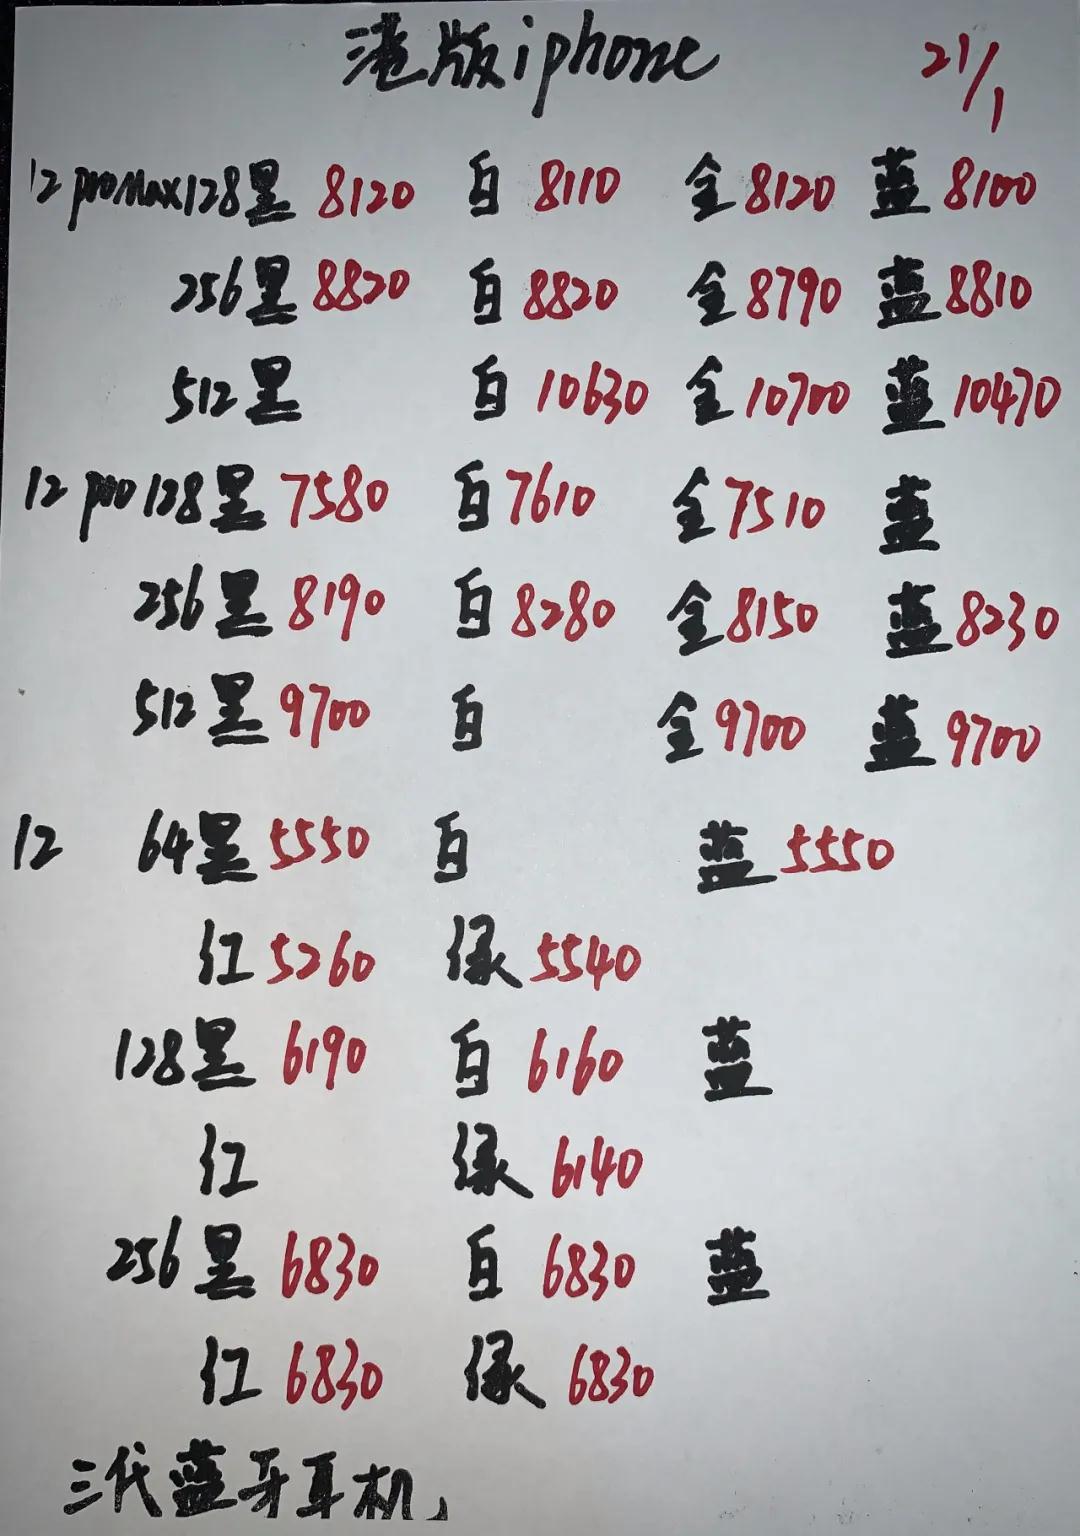 港版iphone 21/1
12 proMax128黑 8120 白 8110 金 8120 蓝 8100
256黑 8820 白 8820 金 8790 蓝 8810
512黑 白 10630 金 10700 蓝 10470
12 pro 128黑 7580 白 7610 金 7510 蓝
256黑 8190 白 8280 金 8150 蓝 8230
512黑 9700 白 金 9700 蓝 9700
12 64黑 5550 白 蓝 5550
红 5260 绿 5540
128黑 6190 白 6160 蓝
红 绿 6140
256黑 6830 白 6830 蓝
红 6830 绿 6830
三代蓝牙耳机